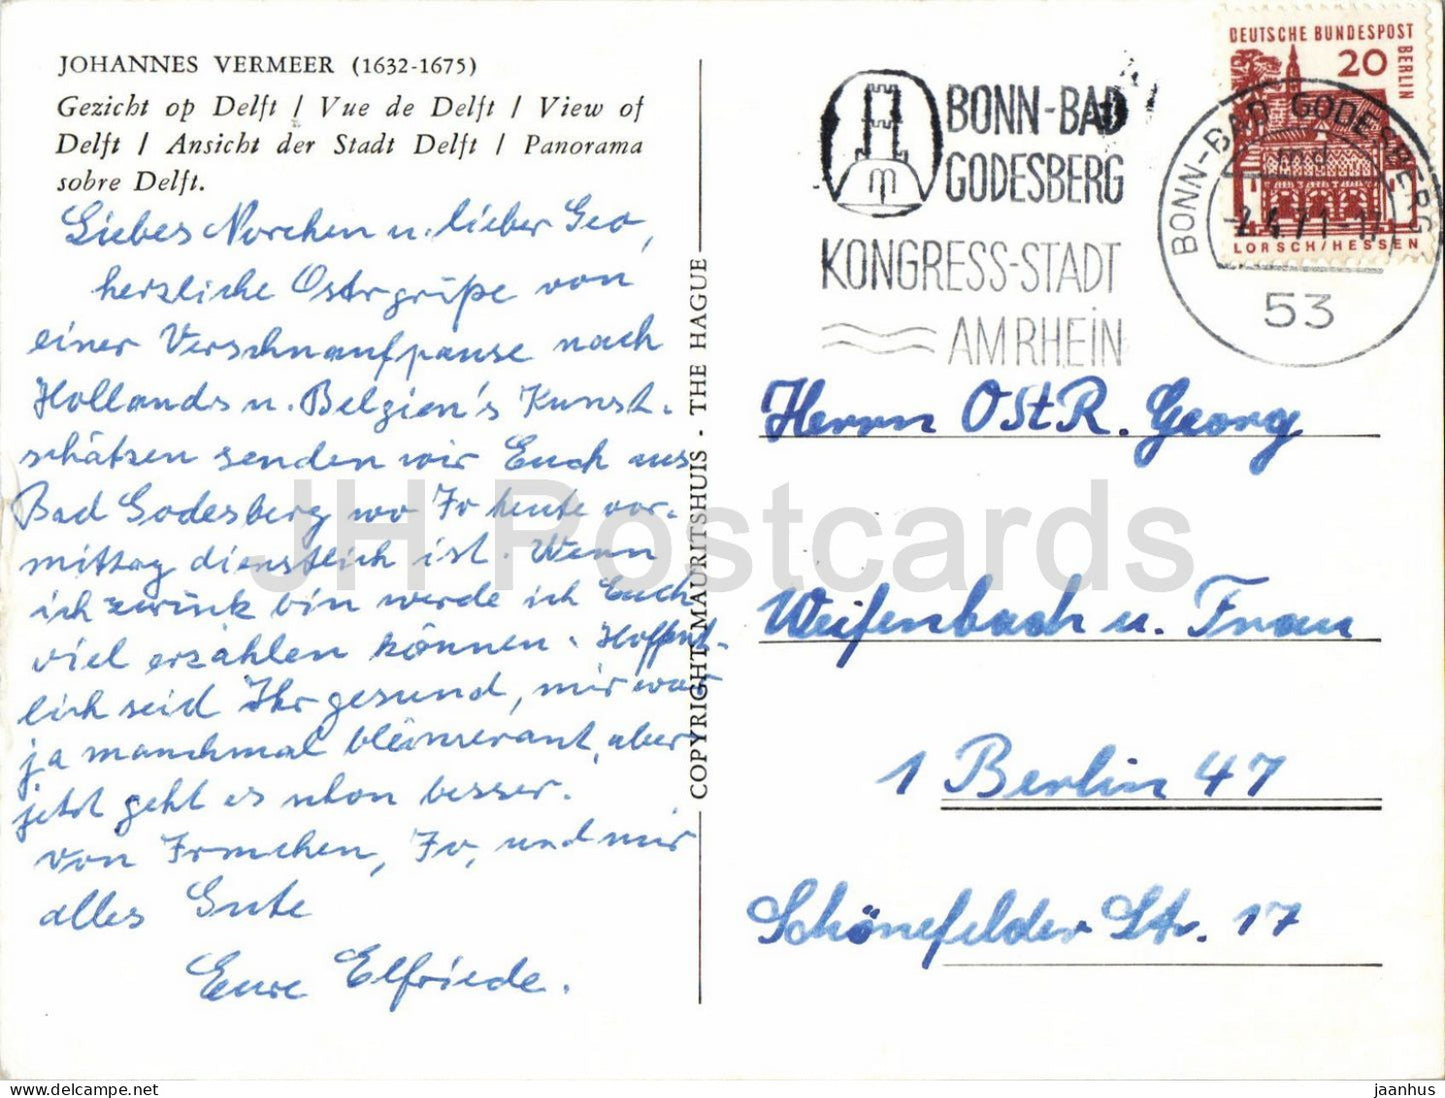 JOHANNES VERMEER (1632-1675)
Gezicht op Delft / Vue de Delft / View of
Delft / Ansicht der Stadt Delft / Panorama
sobre Delft.
Liebes Norchen u. lieber Geo,
herzliche Ostergrüße von
einer Verschnaufpause nach
Hollands u. Belgien's Kunst-
schätzen senden wir Euch aus
Bad Godesberg wo Jo heute vor-
mittag dienstlich ist. Wenn
ich zurück bin werde ich Euch
viel erzählen können. Hoffent-
lich seid Ihr gesund, mir war
ja manchmal blümerant, aber
jetzt geht es schon besser.
Von Irmchen, Jo, und mir
alles Gute
Eure Elfriede.
COPYRIGHT MAURITSHUIS - THE HAGUE
BONN-BAD
GODESBERG
KONGRESS-STADT
AM RHEIN
DEUTSCHE BUNDESPOST
BERLIN
20
LORSCH/HESSEN
BONN-BAD GODESBERG
md
-2.4.71-17
53
Herrn OStR. Georg
Weifenbach u. Frau
1 Berlin 47
Schönefelder Str. 17
JH Postcards
www.delcampe.net
jaanhus